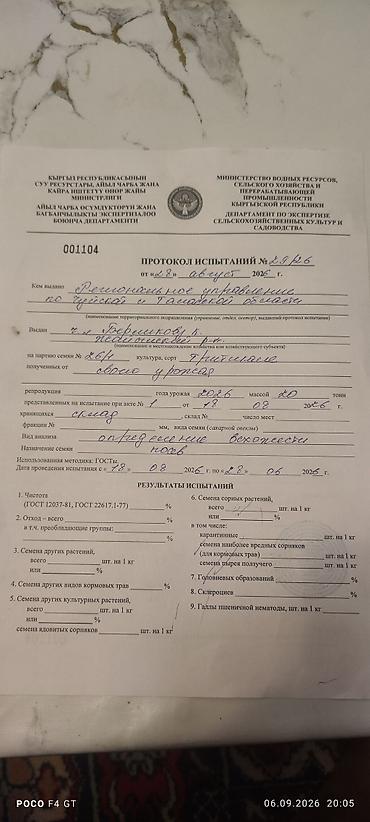 КЫРГЫЗ РЕСПУБЛИКАСЫНЫН
СУУ РЕСУРСТАРЫ, АЙЫЛ ЧАРБА ЖАНА
КАЙРА ИШТЕТҮҮ ӨНӨР ЖАЙЫ
МИНИСТРЛИГИ
АЙЫЛ ЧАРБА ӨСҮМДҮКТӨРҮН ЖАНА
БАГБАНЧЫЛЫКТЫ ЭКСПЕРТИЗАЛОО
БОЮНЧА ДЕПАРТАМЕНТИ
МИНИСТЕРСТВО ВОДНЫХ РЕСУРСОВ,
СЕЛЬСКОГО ХОЗЯЙСТВА И
ПЕРЕРАБАТЫВАЮЩЕЙ
ПРОМЫШЛЕННОСТИ
КЫРГЫЗСКОЙ РЕСПУБЛИКИ
ДЕПАРТАМЕНТ ПО ЭКСПЕРТИЗЕ
СЕЛЬСКОХОЗЯЙСТВЕННЫХ КУЛЬТУР И
САДОВОДСТВА
001104
ПРОТОКОЛ ИСПЫТАНИЙ № 29/26
от «28» август 2026 г.
Кем выдано Региональное управление
по Чуйской и Таласской области
(наименование территориального подразделения (правление, отдел, сектор), выдавший протокол испытаний)
Выдан ч.х
(наименование и местонахождение хозяйства или хозяйствующего субъекта)
на партию семян № 26/1 культура, сорт тритикале
полученных от своего урожая
репродукция год урожая 2026 масса 20 тонн
представленных на испытание при акте № 1 от 18 08 2026 г.
хранящихся склад склад № число мест
фракции № мм, вида семян (сахарной свеклы)
Вид анализа определение всхожести
Назначение семян посев
Использованы методики: ГОСТы.
Дата проведения испытания с «18» 08 2026 г. по «28» 2026 г.
РЕЗУЛЬТАТЫ ИСПЫТАНИЙ
1. Чистота
(ГОСТ 12037-81, ГОСТ 22617.1-77) %
2. Отход – всего %
в т.ч. преобладающие группы:
%
3. Семена других растений,
всего шт. на 1 кг
или %
4. Семена других видов кормовых трав %
5. Семена других культурных растений,
всего шт. на 1 кг
или %
семян ядовитых сорняков шт. на 1 кг
6. Семена сорных растений,
всего шт. на 1 кг
или %
в том числе:
карантинные шт. на 1 кг
семена наиболее вредных сорняков
(для кормовых трав) шт. на 1 кг
семена пырея ползучего шт. на 1 кг
7. Головневых образований %
8. Склероциев %
9. Галлы пшеничной нематоды, шт. на 1 кг
POCO F4 GT
06.09.2026 20:05